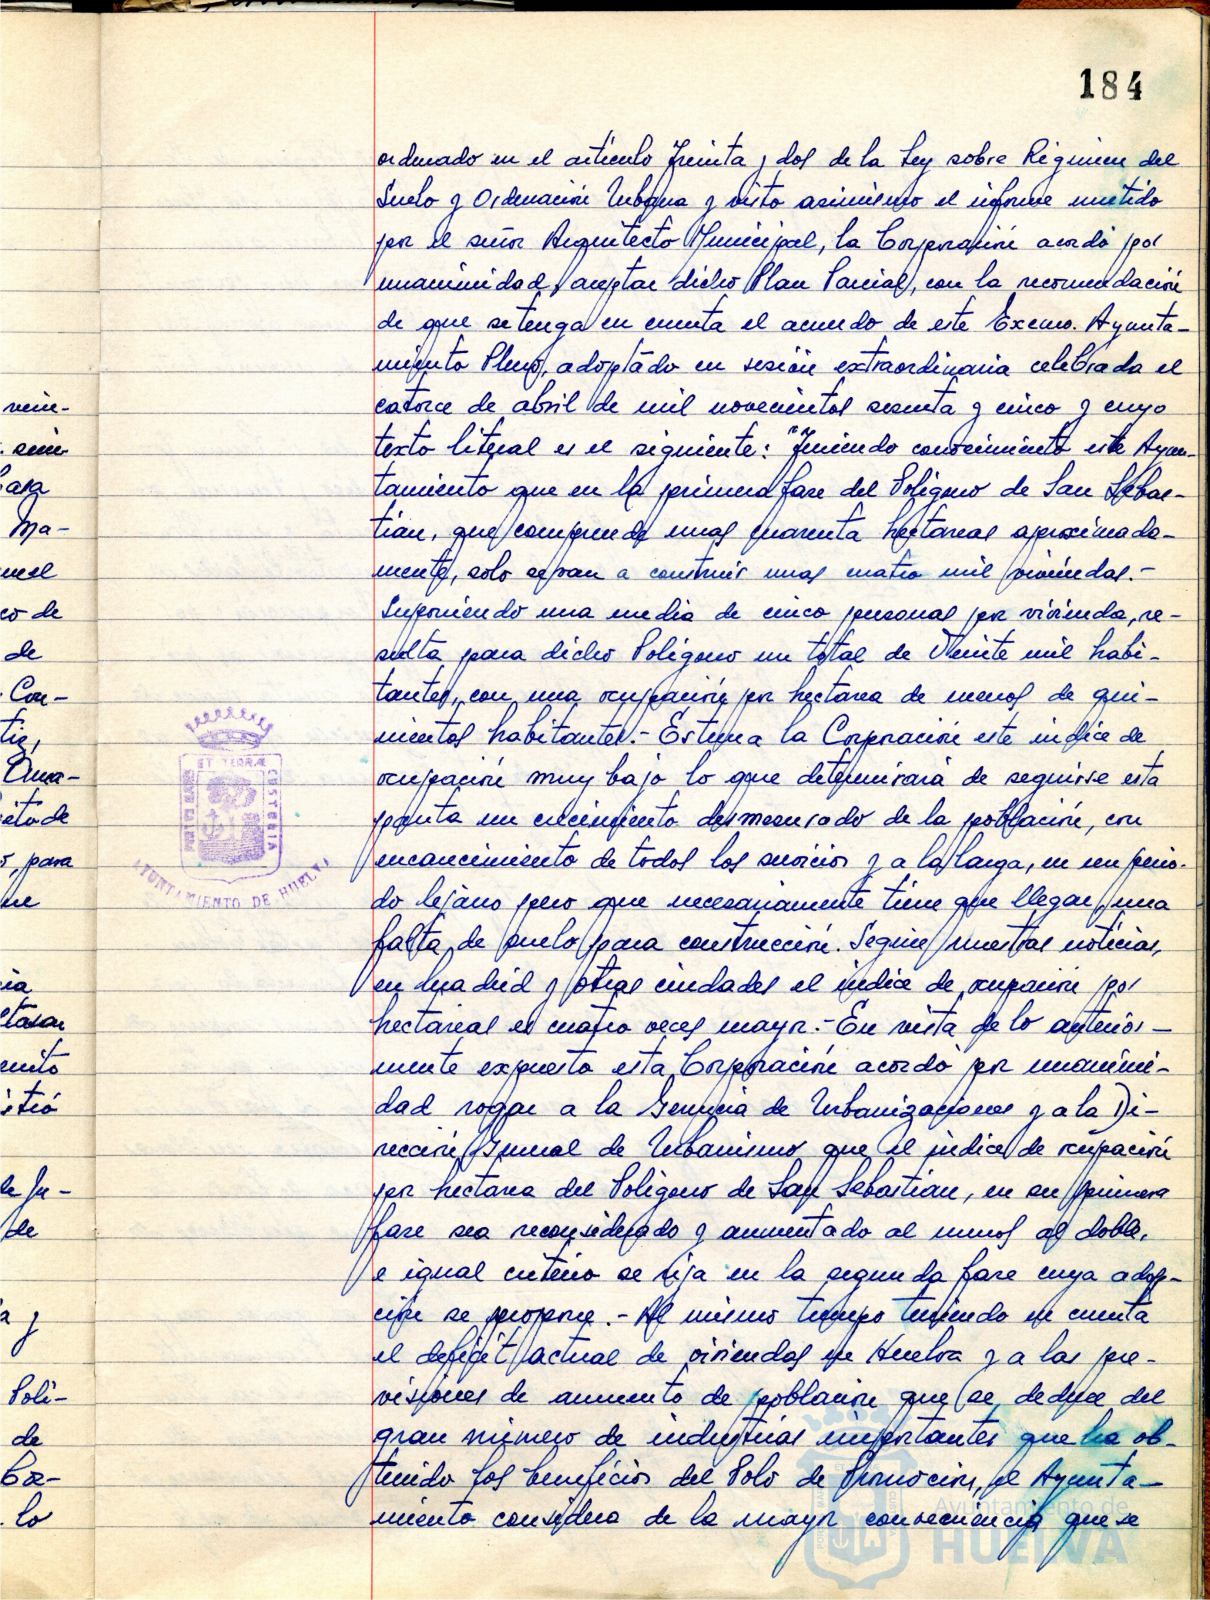 184
ordenado en el artículo Treinta y dos de la Ley sobre Régimen del
Suelo y Ordenación Urbana y visto asimismo el informe emitido
por el señor Arquitecto Municipal, la Corporación acordó por
unanimidad, aceptar dicho Plan Parcial, con la recomendación
de que se tenga en cuenta el acuerdo de este Excmo. Ayunta-
miento Pleno, adoptado en sesión extraordinaria celebrada el
catorce de abril de mil novecientos sesenta y cinco y cuyo
texto literal es el siguiente: "Teniendo conocimiento este Ayun-
tamiento que en la primera fase del Polígono de San Sebas-
tián, que comprende unas cuarenta hectáreas aproximada-
mente, solo se van a construir unas cuatro mil viviendas.-
Suponiendo una media de cinco personas por vivienda, re-
sulta para dicho Polígono un total de Veinte mil habi-
tantes, con una ocupación por hectárea de menos de qui-
nientos habitantes.- Estima la Corporación este índice de
ocupación muy bajo lo que determinará de seguirse esta
pauta un crecimiento desmesurado de la población, con
encarecimiento de todos los servicios y a la larga, en un perio-
do lejano pero que necesariamente tiene que llegar, una
falta de suelo para construcción. Según nuestras noticias,
en Madrid y otras ciudades el índice de ocupación por
hectáreas es cuatro veces mayor.- En vista de lo anterior-
mente expuesto esta Corporación acordó por unanimi-
dad rogar a la Gerencia de Urbanizaciones y a la Di-
rección General de Urbanismo que el índice de ocupación
por hectárea del Polígono de San Sebastián, en su primera
fase sea reconsiderado y aumentado al menos al doble,
e igual criterio se siga en la segunda fase cuya adop-
ción se propone.- Al mismo tiempo teniendo en cuenta
el déficit actual de viviendas en Huelva y a las pre-
visiones de aumento de población que se deduce del
gran número de industrias importantes que ha ob-
tenido los beneficios del Polo de Promoción, el Ayunta-
miento considera de la mayor conveniencia que se
vein-
Casa
Ma-
co de
de
Con-
, para
de
de Ju-
de
Polí-
de
lo
PORTUS MARIS
ET TERRAE
CUSTODIA
AYUNTAMIENTO DE HUELVA
Ayuntamiento de
HUELVA